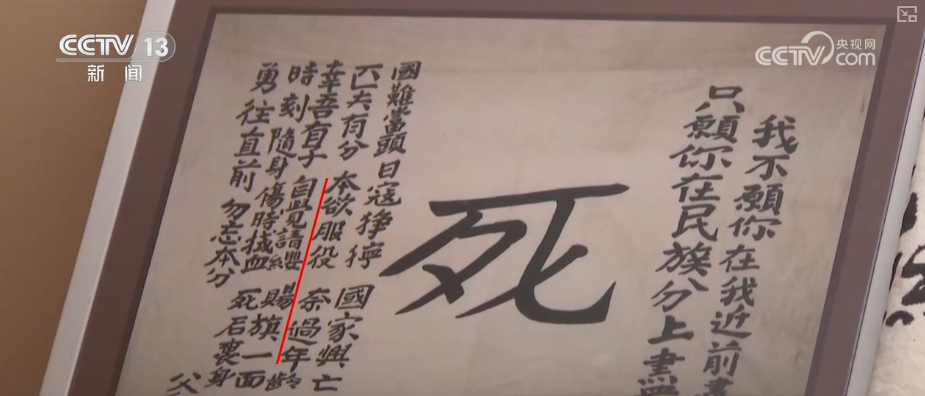 CCTV 13
新闻
央视网
CCTV.com
我不願你在我近前
只願你在民族分上盡
死
國難當頭 日寇猙獰 國家興亡
匹夫有分 本欲服役 奈過年齡
幸吾有子 自覺請纓 賜旗一面
時刻隨身 傷時拭血 死后裹身
勇往直前 勿忘本分
父